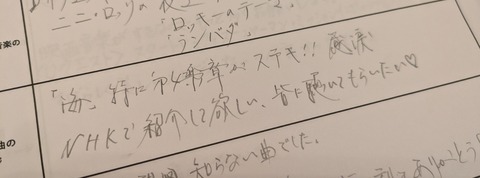 音楽の
ニニ・ロッソの
「ロッキーのテーマ」
「ランバダ」
「海」特に第4楽章がステキ!! 感涙
NHKで紹介して欲しい、皆に聴いてもらいたい♡
曲の
知らない曲でした。
ありがとう